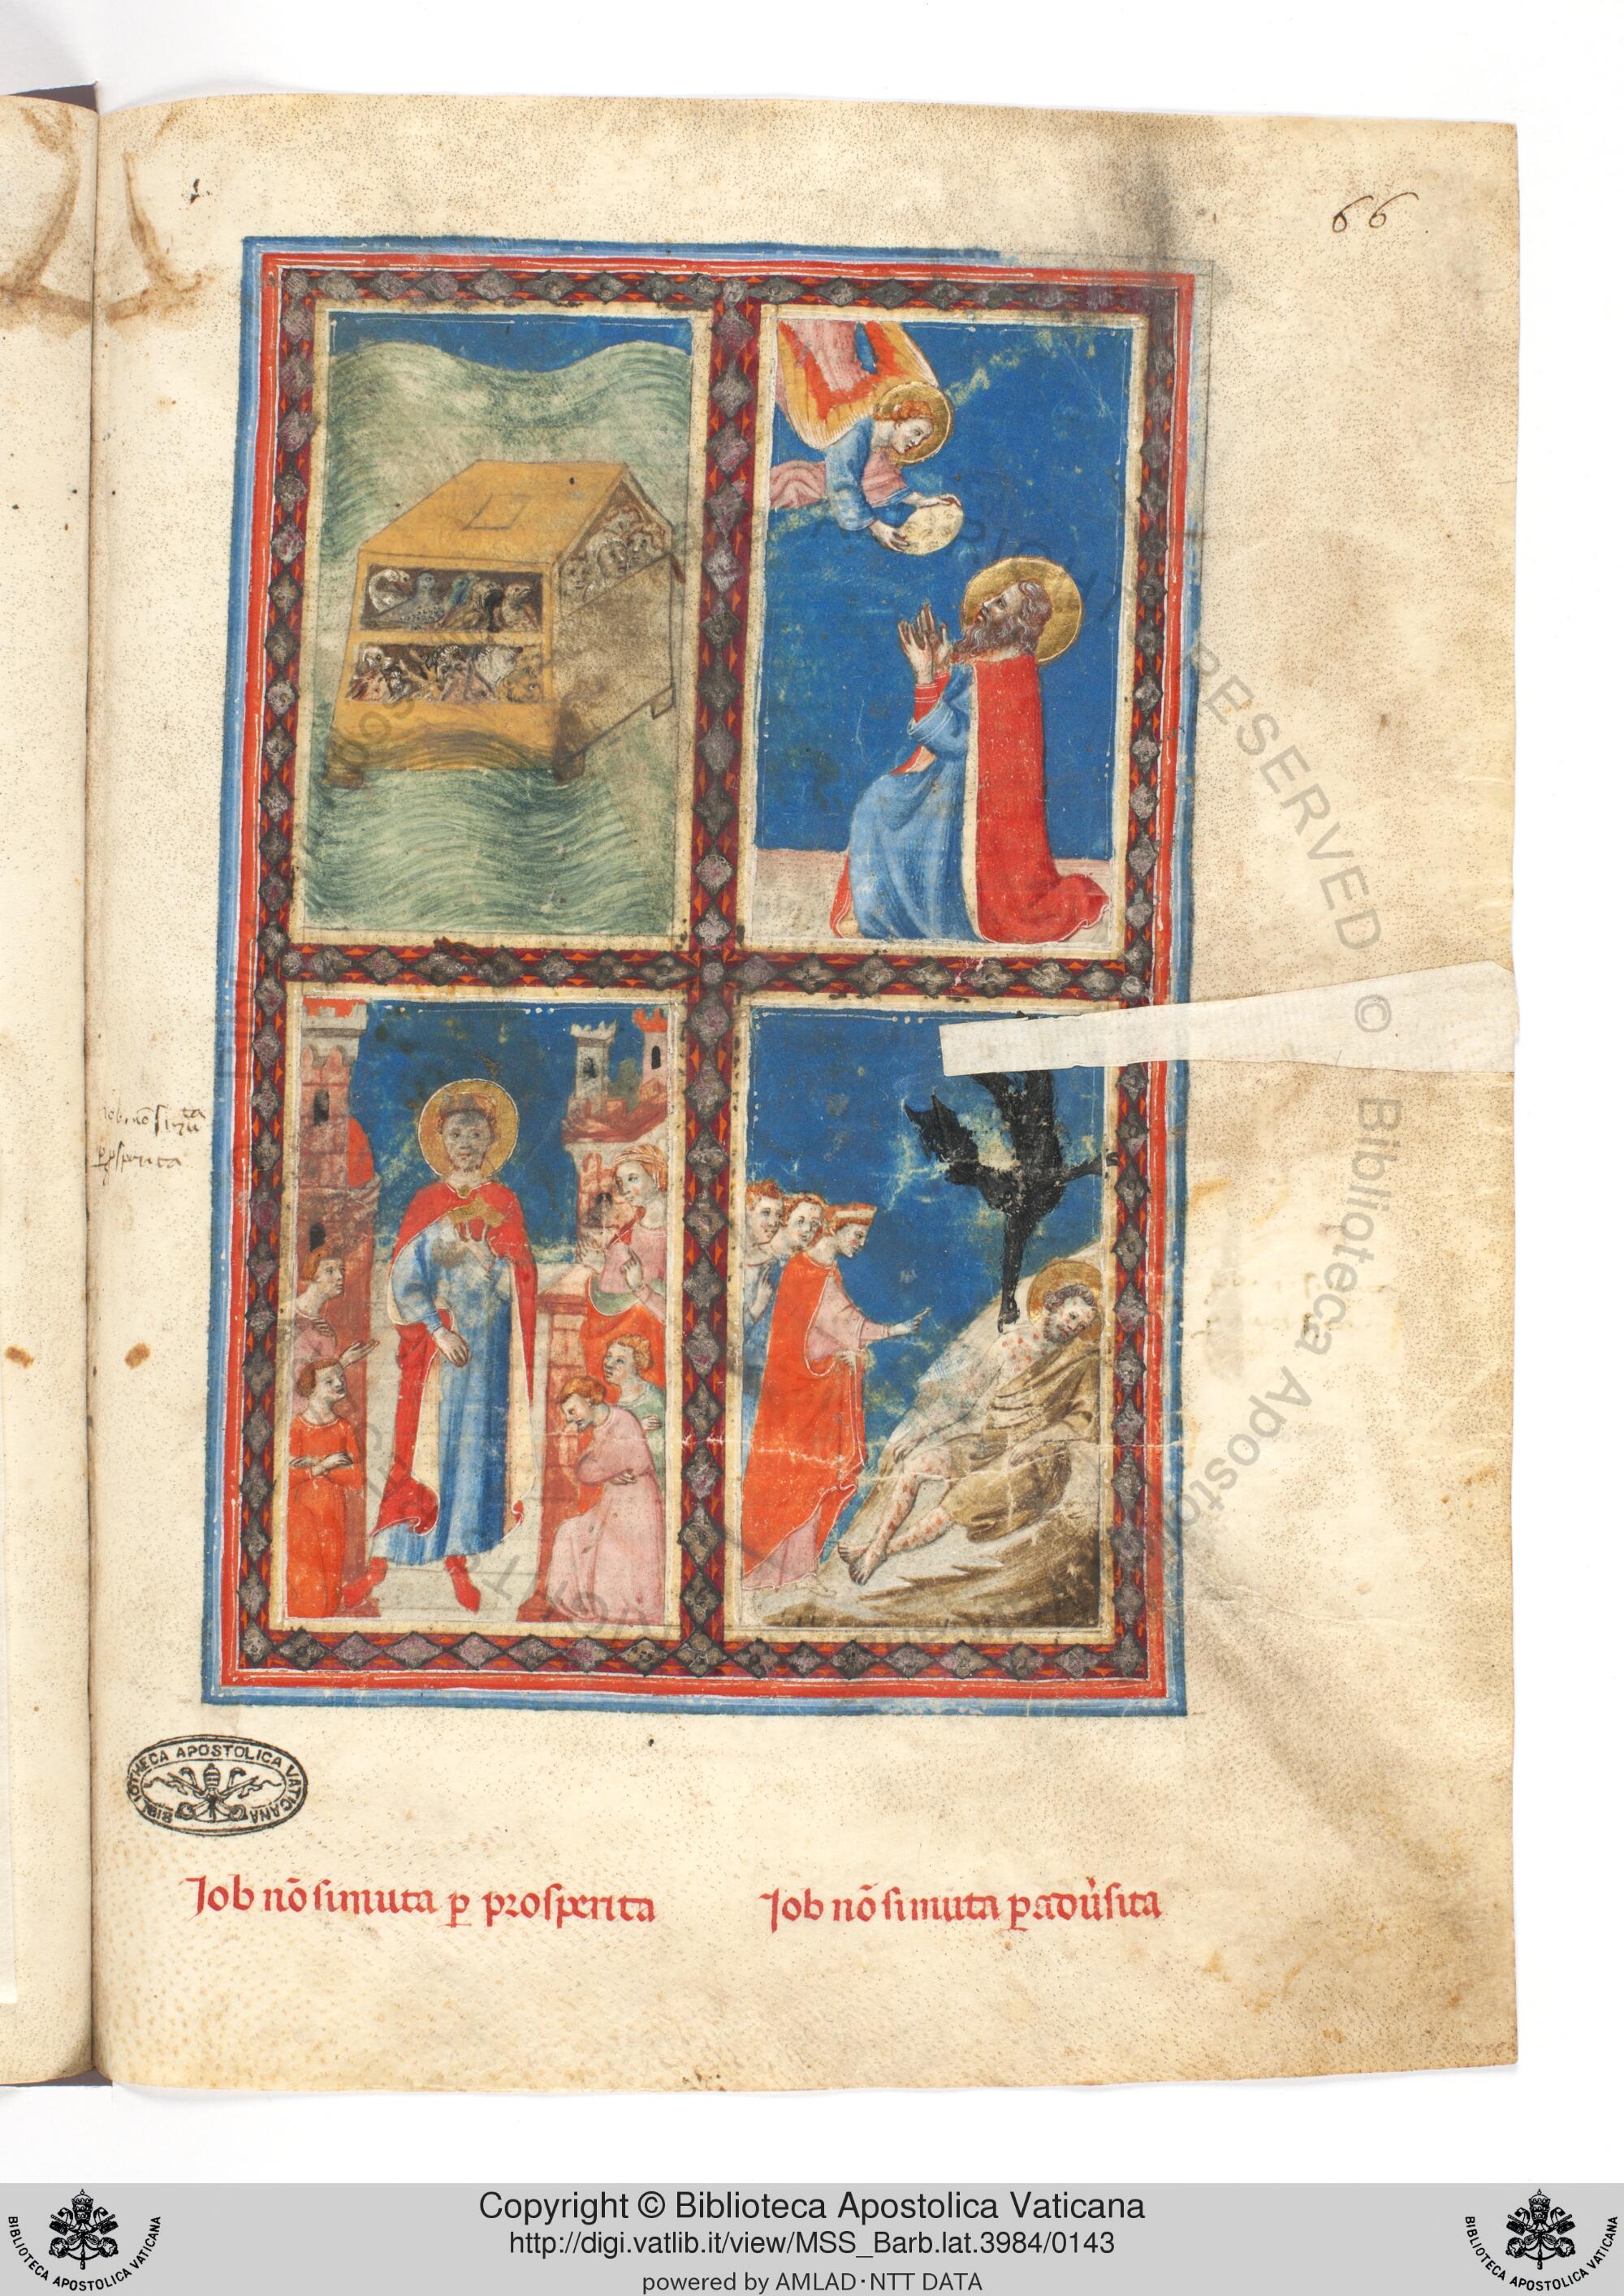 66
Iob nō simuta
ꝑ ꝓsperita
BIBLIOTHECA APOSTOLICA VATICANA
Iob nō simuta ꝑ prosperita
Iob nō simuta ꝑ adu̓sita
RESERVED © Biblioteca Apostol
Copyright © Biblioteca Apostolica Vaticana
http://digi.vatlib.it/view/MSS_Barb.lat.3984/0143
powered by AMLAD·NTT DATA
BIBLIOTECA APOSTOLICA VATICANA
BIBLIOTECA APOSTOLICA VATICANA